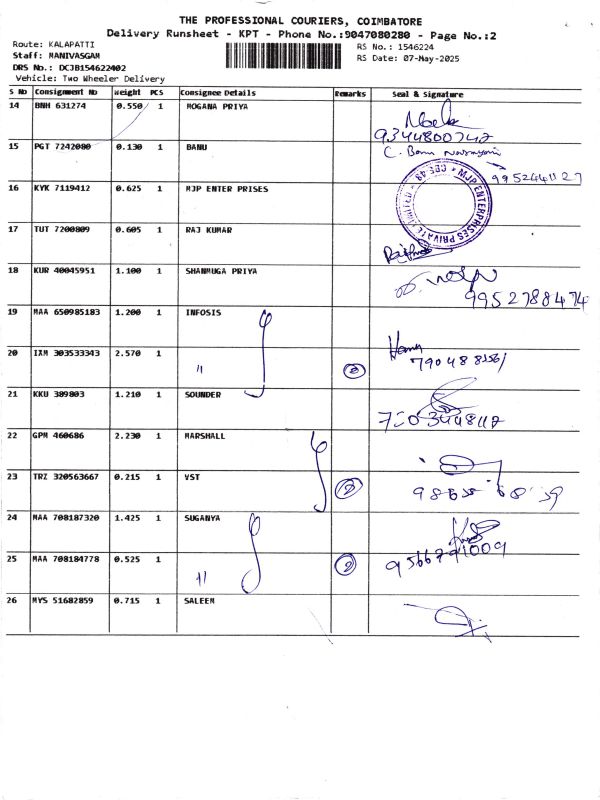 THE PROFESSIONAL COURIERS, COIMBATORE
Delivery Runsheet - KPT - Phone No.:9047080280 - Page No.:2
Route: KALAPATTI
RS No.: 1546224
Staff: MANIVASGAM
RS Date: 07-May-2025
DRS No.: DCJB154622402
Vehicle: Two Wheeler Delivery
S No Consignment No Weight PCS Consignee Details Remarks Seal & Signature
14 BNH 631274 0.550 1 MOGANA PRIYA
9344800742
15 PGT 7242080 0.130 1 BANU C. Banu
9952441127
16 KYK 7119412 0.625 1 MJP ENTER PRISES
MJP ENTERPRISES PRIVATE LIMITED
17 TUT 7200809 0.605 1 RAJ KUMAR
18 KUR 40045951 1.100 1 SHANMUGA PRIYA
9952788474
19 MAA 650985183 1.200 1 INFOSIS
20 IXM 303533343 2.570 1 " 2
21 KKU 389803 1.210 1 SOUNDER
22 GPM 460686 2.230 1 MARSHALL
23 TRZ 320563667 0.215 1 VST 2
24 MAA 708187320 1.425 1 SUGANYA
25 MAA 708184778 0.525 1 " 2
26 MYS 51682859 0.715 1 SALEEM